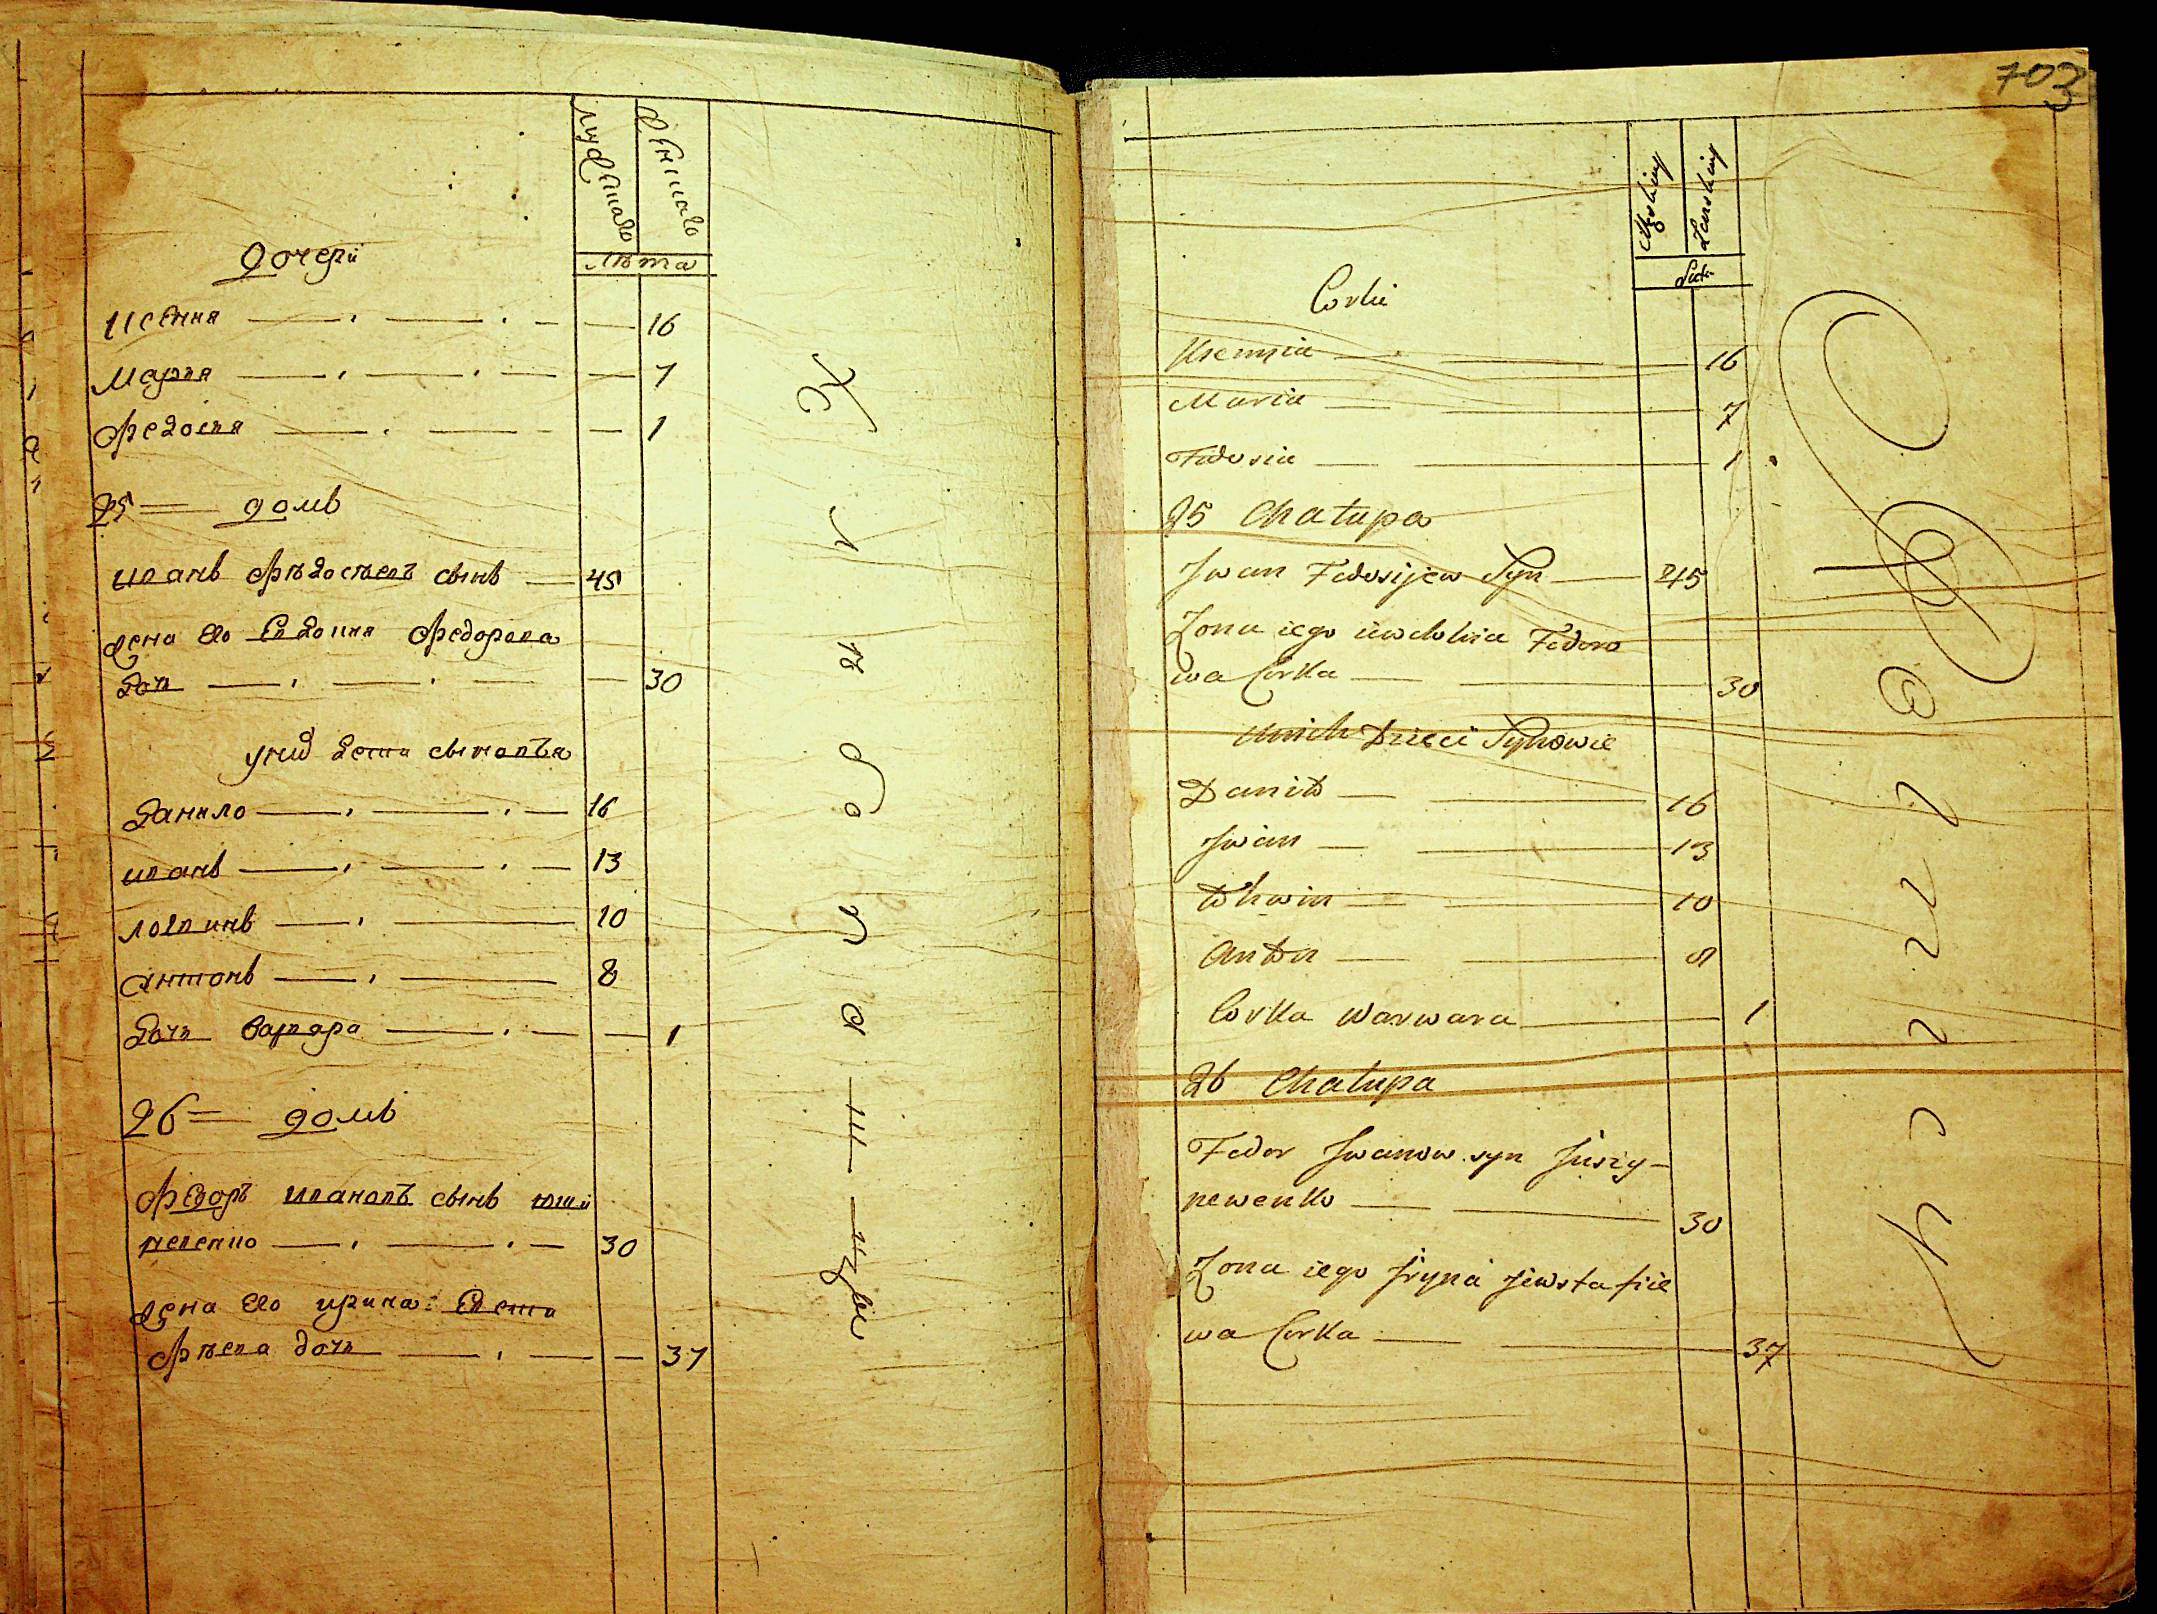 мужеска
женска
лѣта
дочери
Ксения 16
Марья 7
Федосия 1
25 домъ
Иванъ Федосѣевъ сынъ 45
жена его Евдокия Федорова
дочь 30
у них дети сыновья
Данило 16
Иванъ 13
Логвинъ 10
Антонъ 8
дочь Варвара 1
26 домъ
Федоръ Ивановъ сынъ
30
жена его Ирина Евста
фиева дочь 37
703
Męskiey
Żenskiey
Lat
Corki
Ksennia 16
Maria 7
Fedosia 1
25 Chałupa
Jwan Fedosijew Syn 45
Zona iego iewdokia Fedoro
wa Corka 30
unich Dzieci Synowie
Daniło 16
Jwan 13
Łohwin 10
Anton 8
Corka Warwara 1
26 Chałupa
Fedor Jwanow syn
30
Zona iego Jryna Jewstafie
wa Corka 37